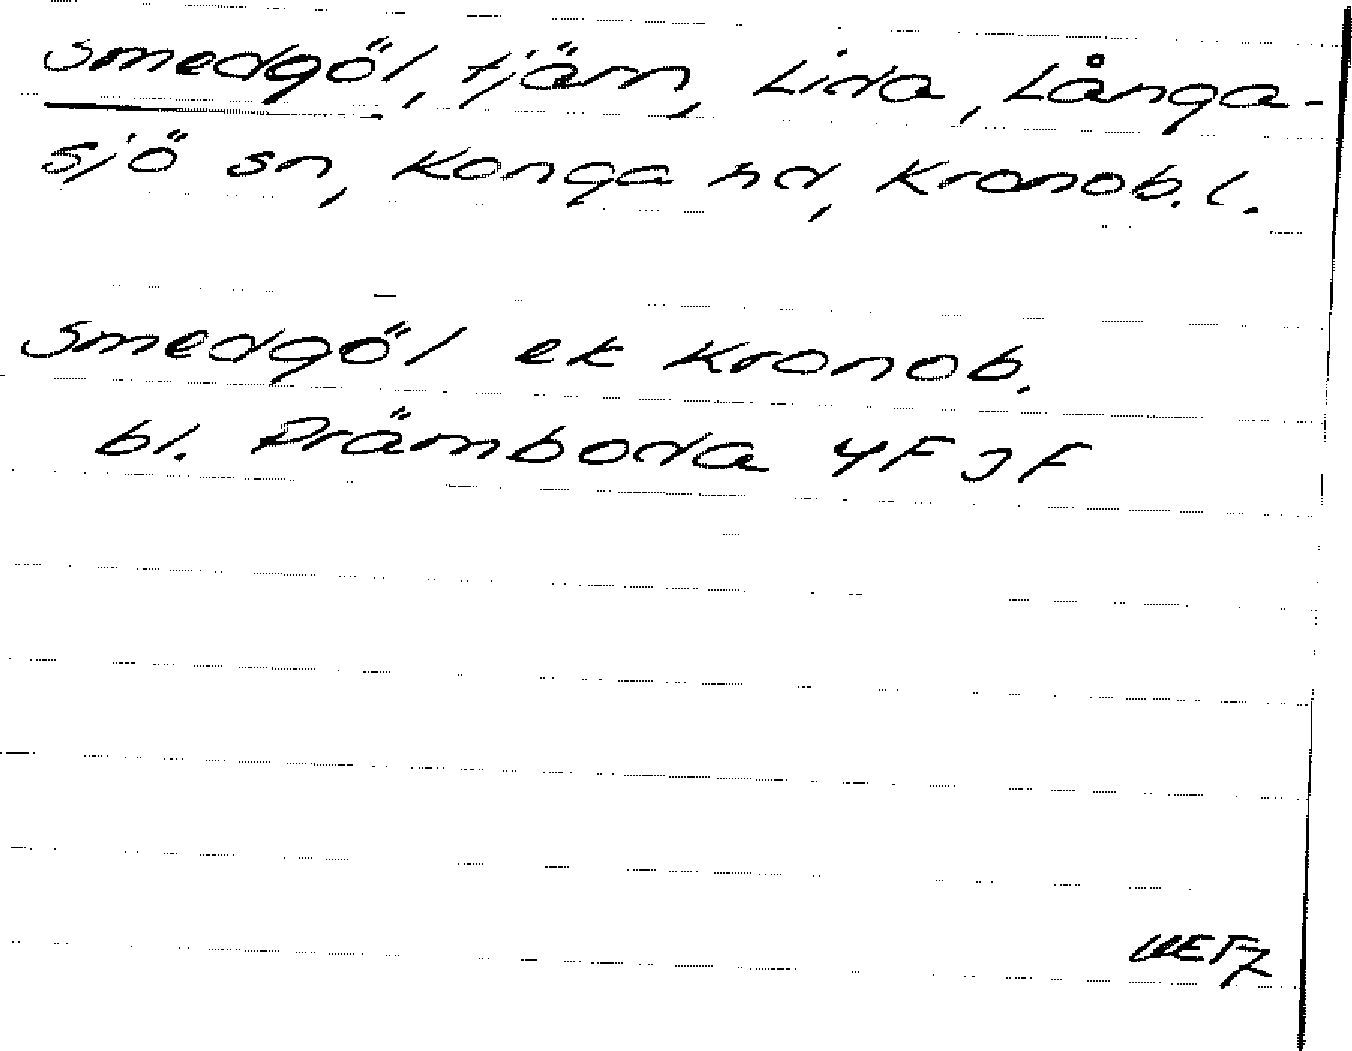 Smedgöl, tjärn, Lida, Långa-
sjö sn, Konga hd, Kronob. l.
Smedgöl ek Kronob.
bl. Prämboda 4F JF